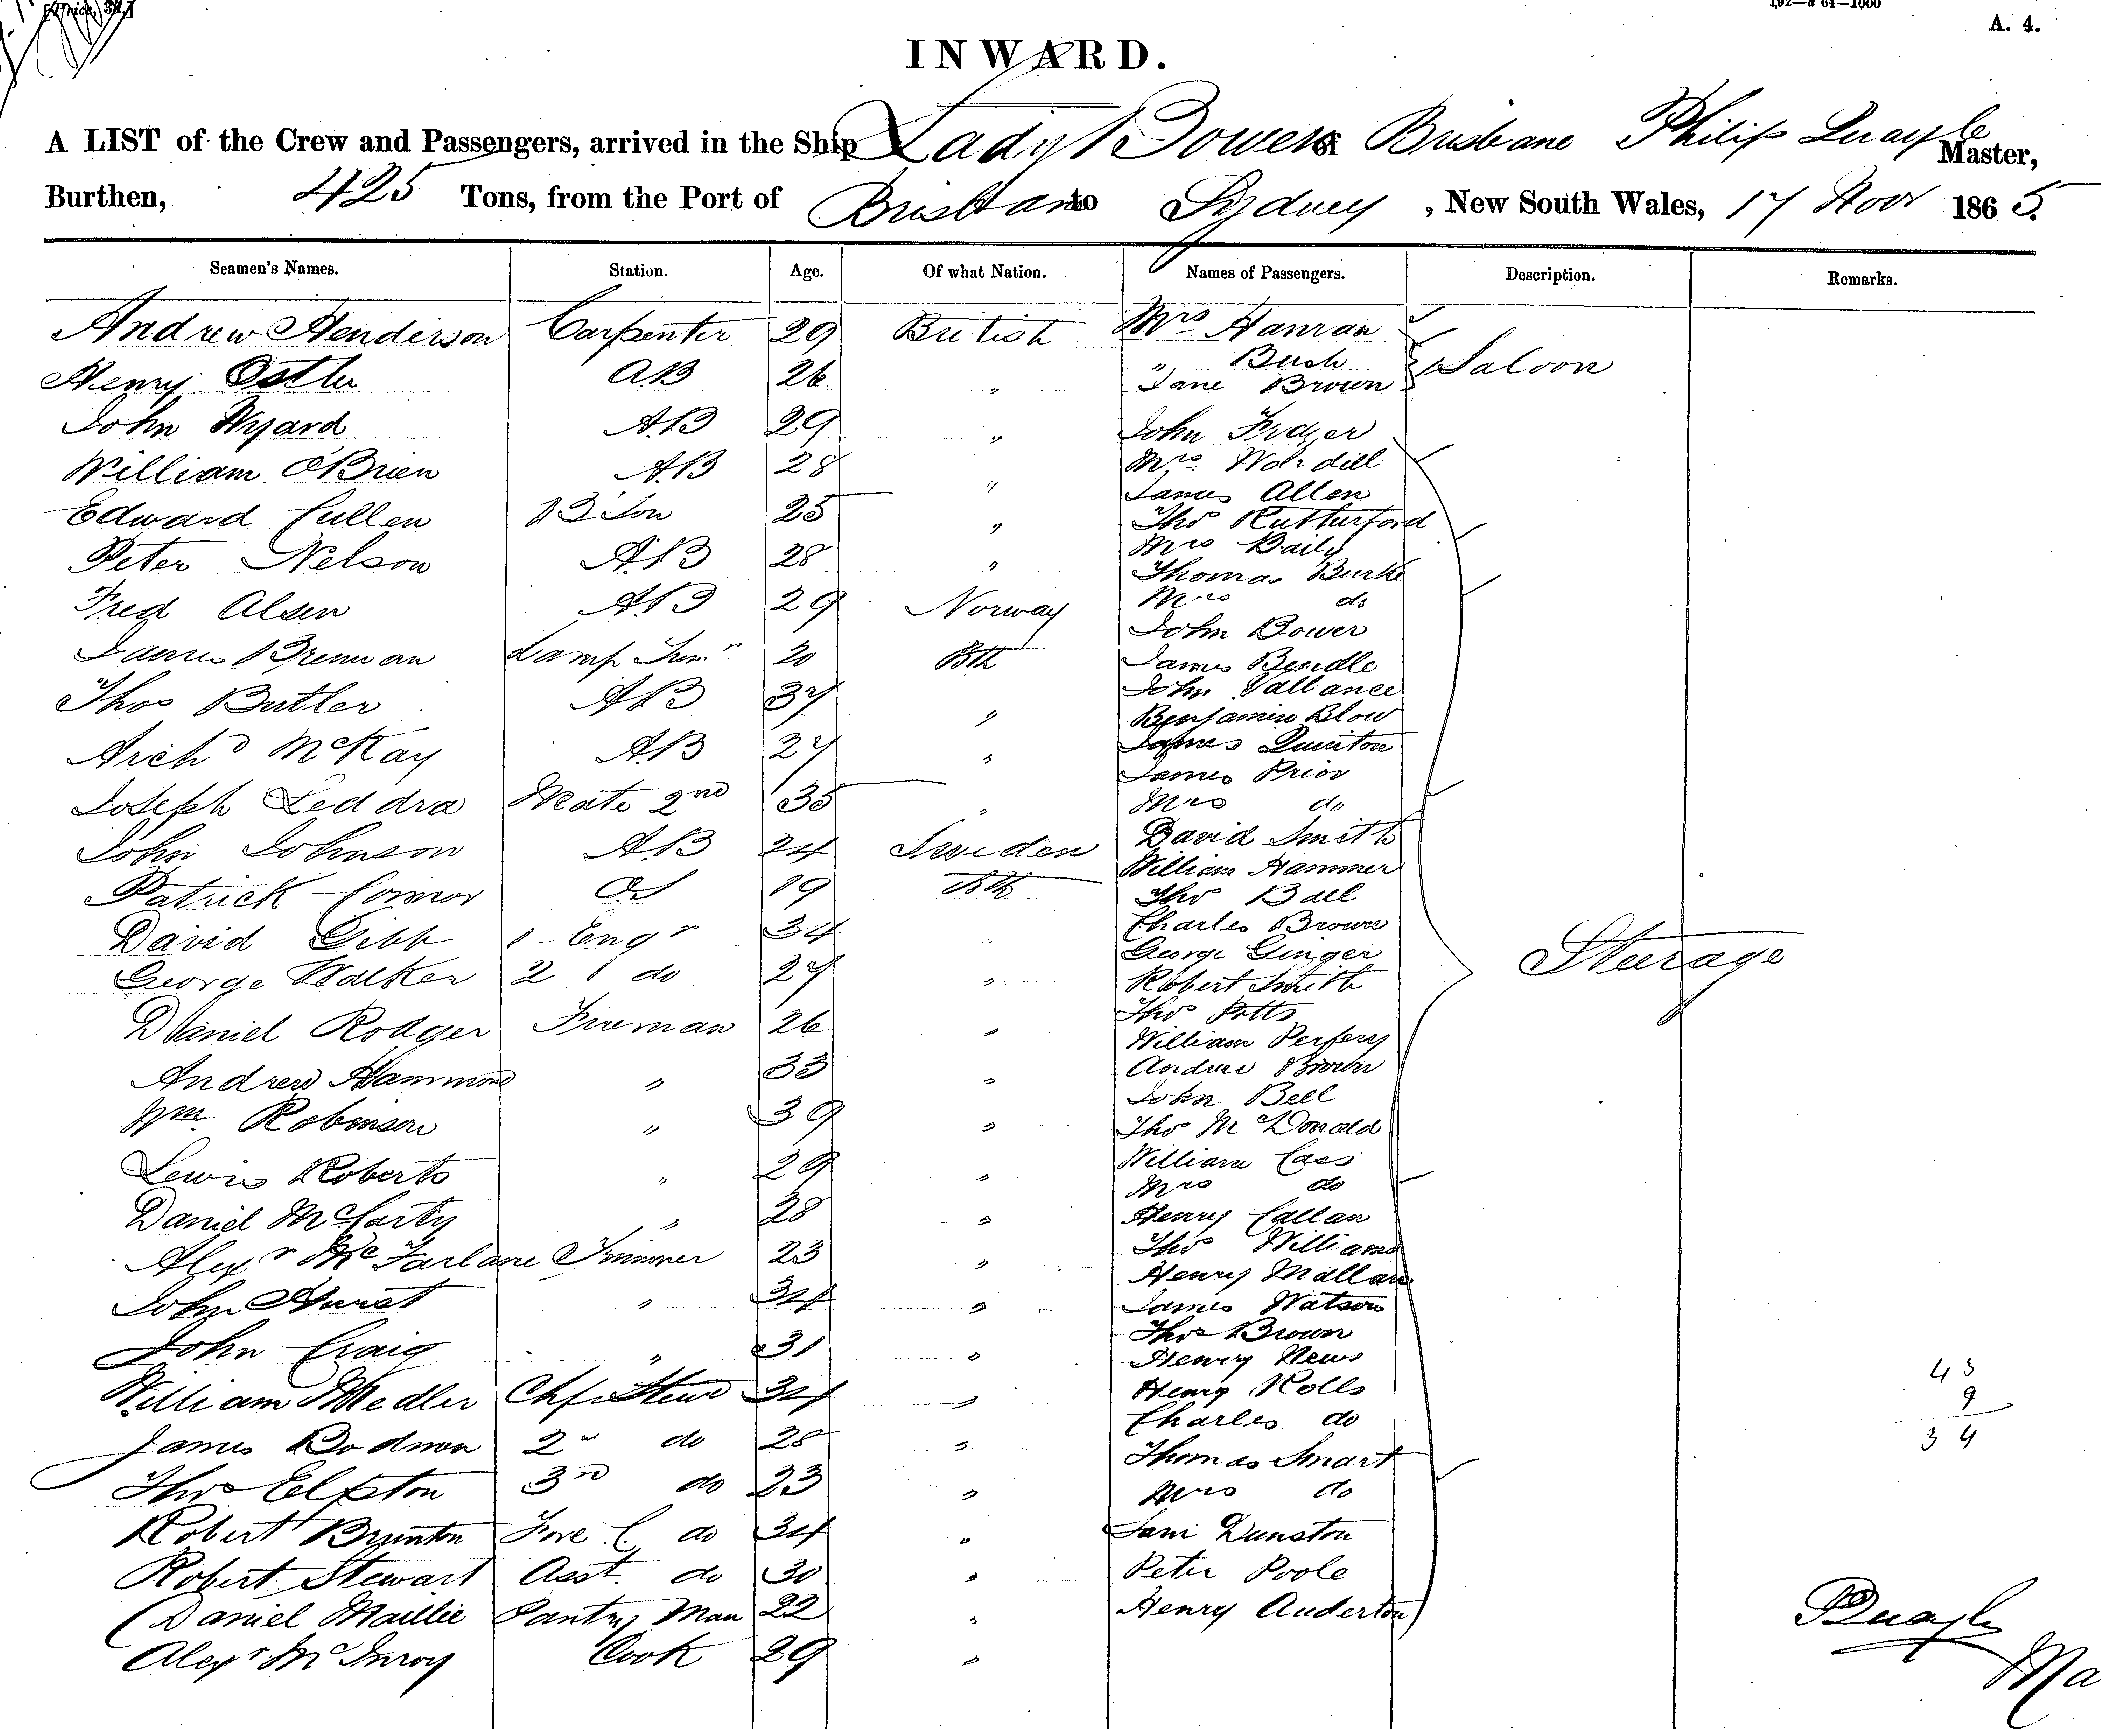 A. 4.
INWARD.
A LIST of the Crew and Passengers, arrived in the Ship Lady Bowen of Brisbane Philip Quayle Master,
Burthen, 425 Tons, from the Port of Brisbane to Sydney, New South Wales, 17 Novr 1865.
Seamen's Names. Station. Age. Of what Nation. Names of Passengers. Description. Remarks.
Andrew Henderson Carpenter 29 British Mrs Hanran
" Bush Saloon
Henry Ostler AB 26 " Jane Brown
John Wyard A.B 29 " John Frazer
William O'Brien A.B 28 " Mrs Wordell
James Allen
Edward Cullen B Son 25 " Thos Rutherford
Mrs Baily
Peter Nelson A.B 28 " Thomas Burke
Fred Alsen A.B 29 Norway Mrs do
John Bower
James Brennan Lamp Trimr 20 Bth James Bendle
Thos Butler AB 37 " John Vallance
Benjamin Blow
Archd McKay A.B 27 " James Quinton
James Prior
Joseph Leddra Mate 2nd 35 " Mrs do
John Johnson A.B 24 Sweden David Smith
William Hammer
Patrick Connor OS 19 Bth Thos Ball
David Gibb 1 Engr 34 Charles Brown
George Ginger Sturage
George Walker 2 do 27 " Robert Smith
Thos Potts
Daniel Rodger Fireman 26 " William Perfery
Andrew Hammond " 33 " Andrew Brown
John Bell
Wm. Robinson " 39 " Thos McDonald
Lewis Roberts " 29 " William Cass
Mrs do
Daniel McCarty " 28 " Henry Callan
Alexr McFarlane Trimmer 23 " Thos Williams
Henry Mallan
John Hurst " 34 " James Watson
Thos Brown
John Craig " 31 " Henry News
William Medler Chf Stewd 34 " Henry Rolls
Charles do
James Bodman 2nd do 28 " Thomas Smart
Thos Elston 3rd do 23 " Mrs do
Robert Brunton Fore C do 34 " Jani Dunston
Robert Stewart Asst. do 30 " Peter Poole
Daniel Maillie Pantry Man 22 " Henry Auderton
Alexr McInroy Cook 29 "
43
9
34
PQuayle
Ma